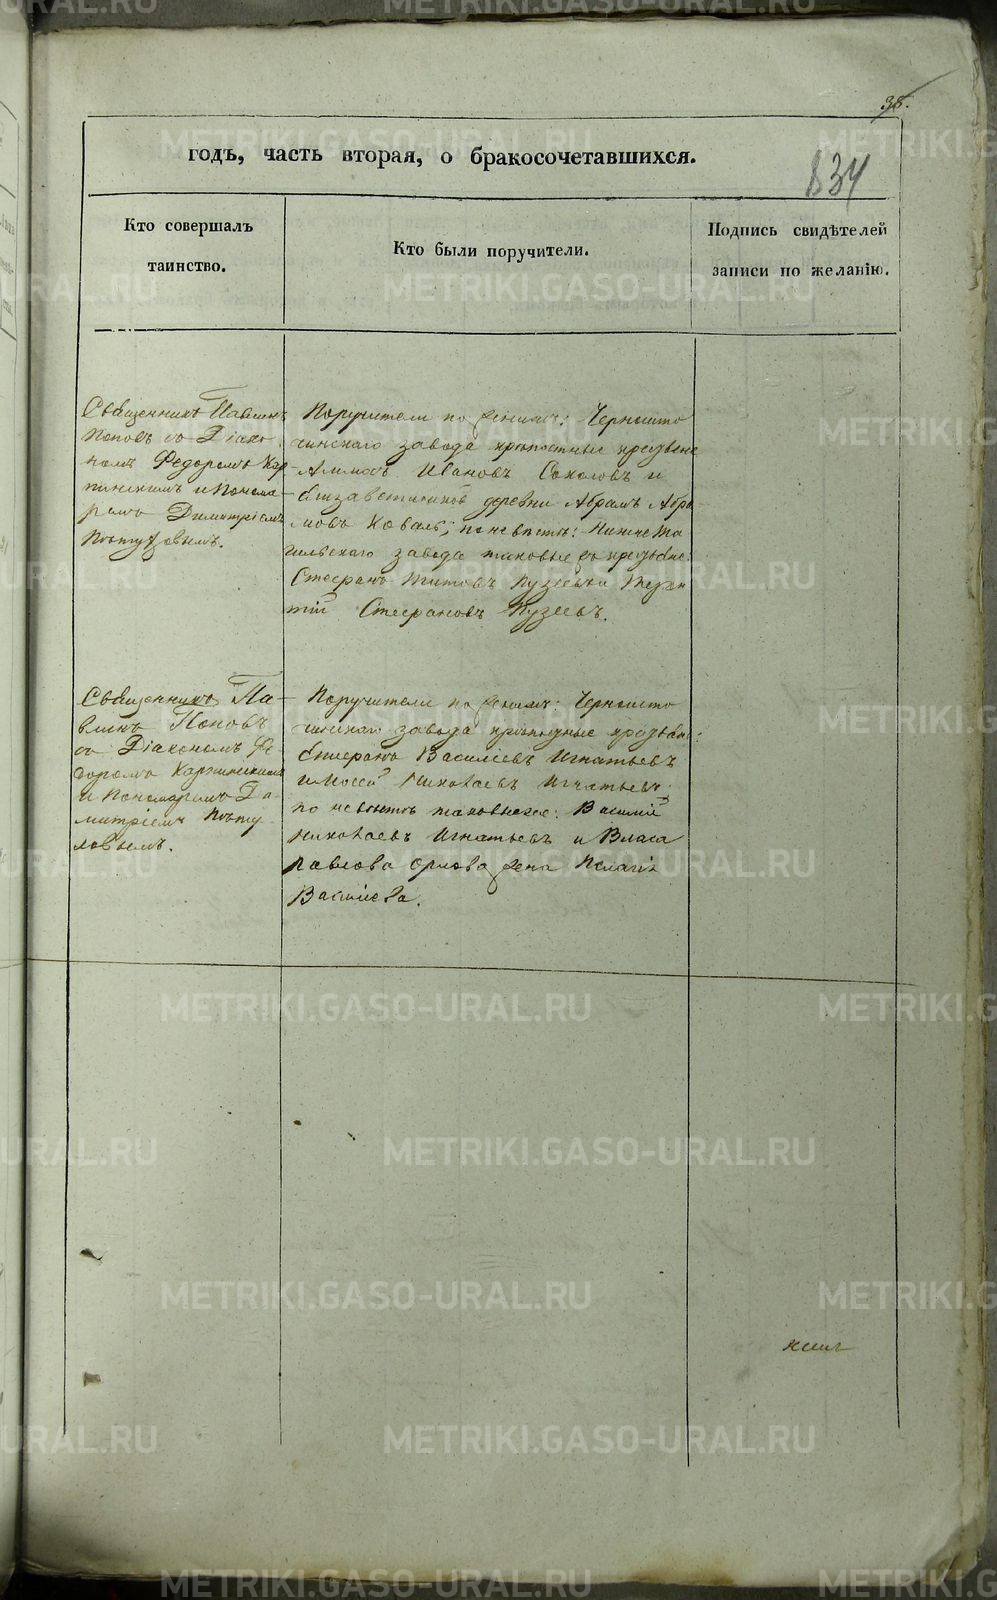 38.
834
годъ, часть вторая, о бракосочетавшихся.
Кто совершалъ
таинство.
Кто были поручители.
Подпись свидѣтелей
записи по желанію.
Священникъ Павлинъ
Поповъ съ Діако
номъ Федоромъ Кар
пинскимъ и Понома
ремъ Димитріемъ
Поручители по женихѣ: Черноисто
чинскаго завода
Иванов Соколовъ и
Елизаветинской деревни Абрамъ Абра
мовъ Коваль; по невѣстѣ: Нижнета
гильскаго завода таковые
Стефанъ Титовъ Пузеевъ и Терен
тій Стефановъ Пузеевъ.
Священникъ Па
влинъ Поповъ
съ Діакономъ Фе
доромъ Карпинскимъ
и Пономаремъ Ди
митріемъ
Поручители по женихѣ: Черноисто
чинскаго завода
Василіевъ Игнатьевъ
и Моисей Николаевъ Игнатьевъ
по невѣстѣ таковыеже: Василій
Николаевъ Игнатьевъ и Власа
Павлова Орлова жена Пелагія
Василіева.
METRIKI.GASO-URAL.RU